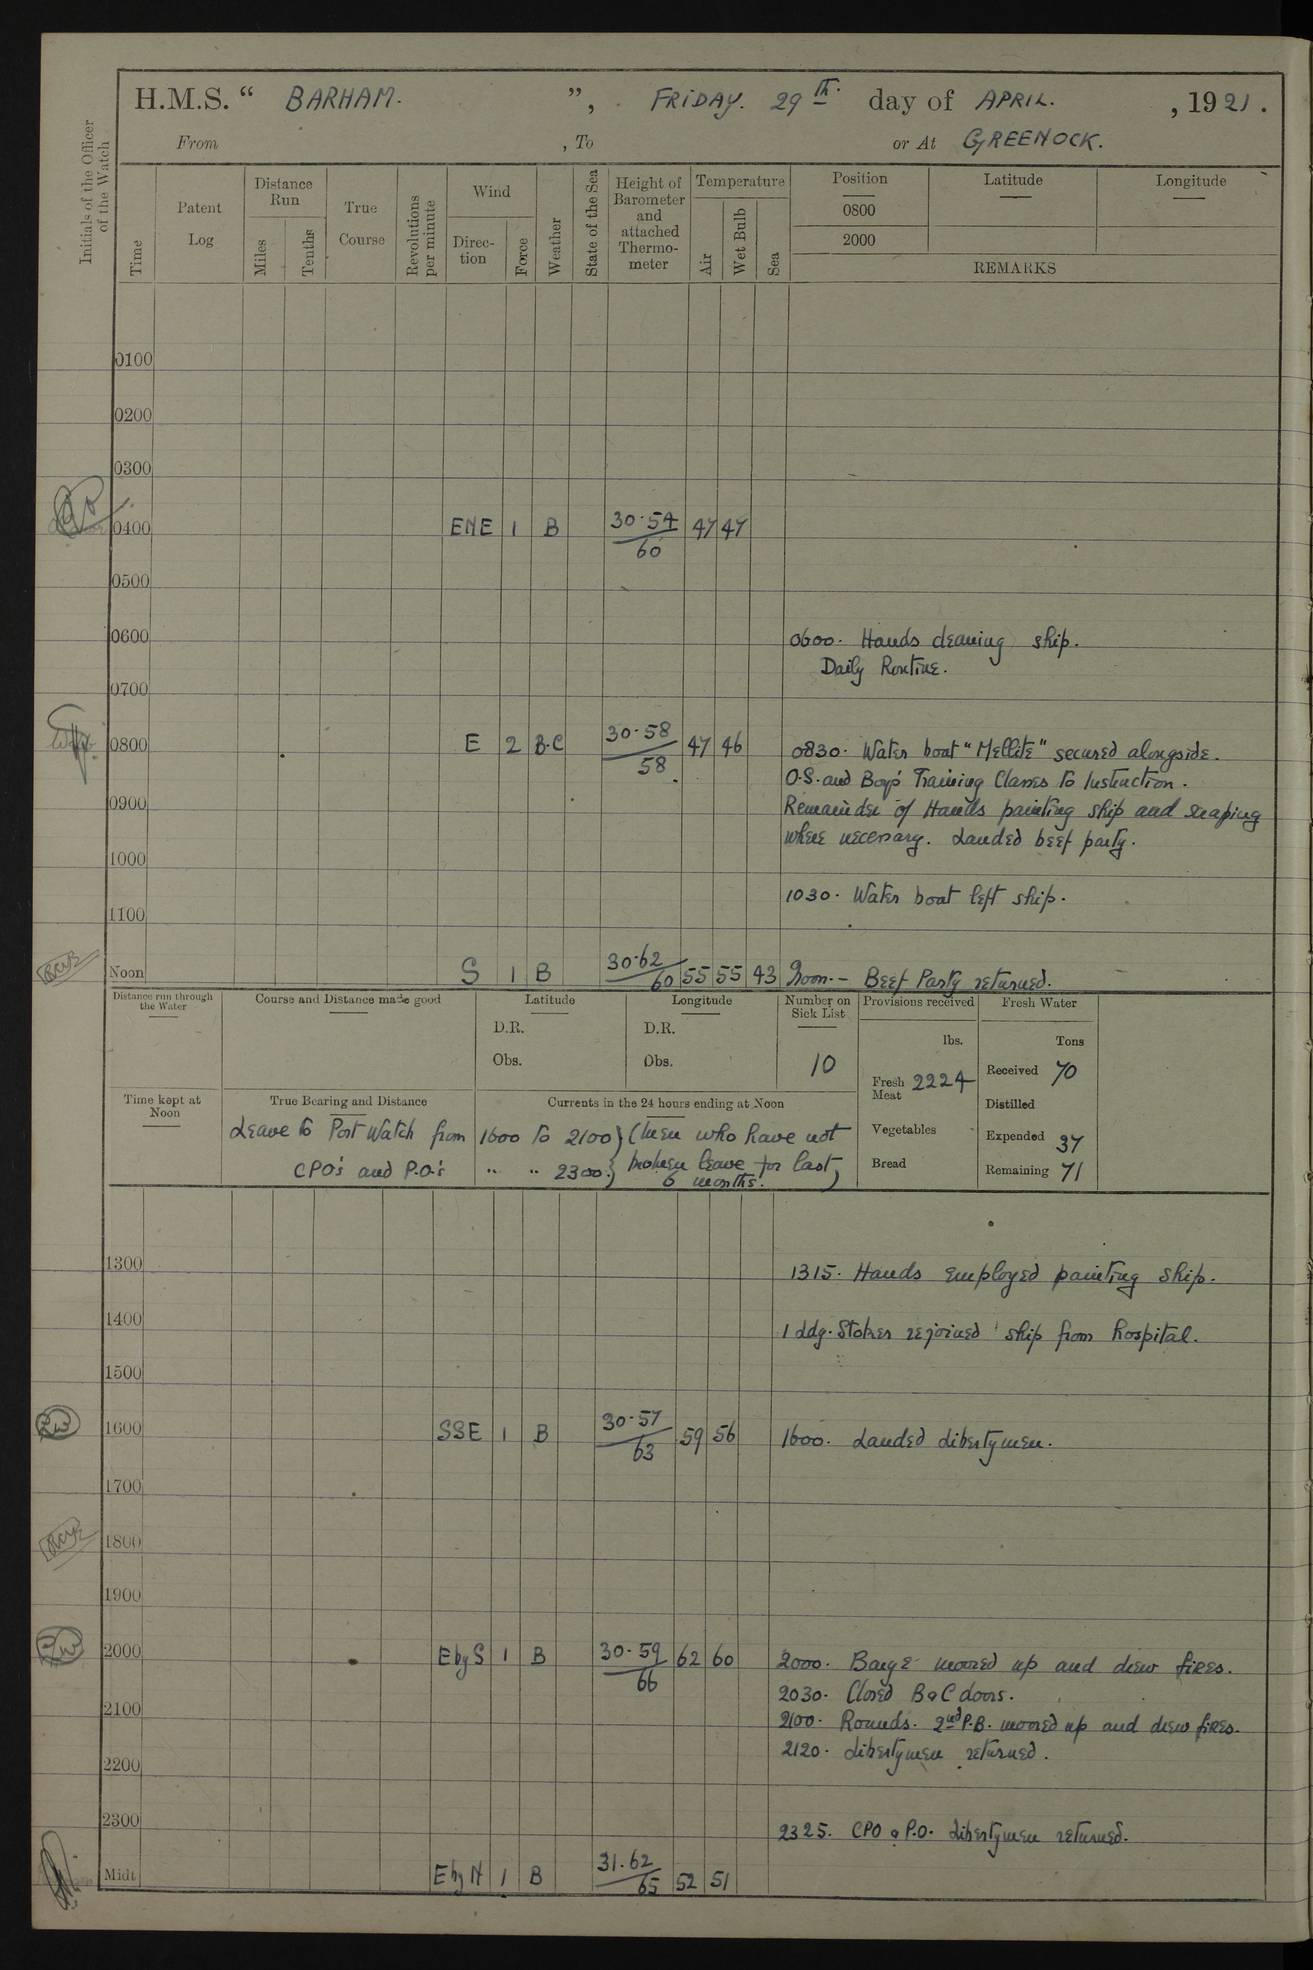 H.M.S. “ BARHAM. ”, FRIDAY. 29th. day of APRIL. , 1921.
From , To or At GREENOCK.
Initials of the Officer of the Watch
Time
Patent Log
Distance Run
Miles
Tenths
True Course
Revolutions per minute
Wind
Direc-tion
Force
Weather
State of the Sea
Height of Barometer and attached Thermo-meter
Temperature
Air
Wet Bulb
Sea
Position Latitude Longitude
0800
2000
REMARKS
0100
0200
0300
0400 ENE 1 B 30·54/60 47 47
0500
0600 0600. Hands cleaning ship.
Daily Routine.
0700
0800 E 2 B.C 30·58/58 47 46 0830. Water boat “Mellite” secured alongside.
O.S. and Boys' Training Classes to Instruction.
0900 Remainder of Hands painting ship and scraping
where necessary. Landed beef party.
1000
1030. Water boat left ship.
1100
Noon S 1 B 30·62/60 55 55 43 Noon.– Beef Party returned.
Distance run through the Water
Course and Distance made good
Latitude
D.R.
Obs.
Longitude
D.R.
Obs.
Number on Sick List
10
Provisions received
lbs.
Fresh Meat 2224
Vegetables
Bread
Fresh Water
Tons
Received 70
Distilled
Expended 37
Remaining 71
Time kept at Noon
True Bearing and Distance
Currents in the 24 hours ending at Noon
Leave to Port Watch from 1600 to 2100 } (men who have not
CPO's and P.O.'s " " 2300. } broken leave for last
6 months.)
1300 1315. Hands employed painting ship.
1400 1 Ldg. Stoker rejoined ship from hospital.
1500
1600 SSE 1 B 30·57/63 59 56 1600. Landed libertymen.
1700
1800
1900
2000 E by S 1 B 30·59/66 62 60 2000. Barge moored up and drew fires.
2030. Closed B & C doors.
2100 2100. Rounds. 2nd P.B. moored up and drew fires.
2120. Libertymen returned.
2200
2300 2325. CPO & P.O. libertymen returned.
Midt E by N 1 B 31.62/65 52 51